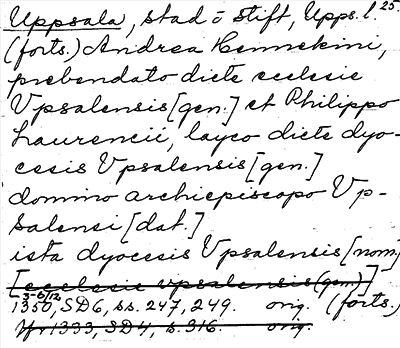 Uppsala, stad o stift, Upps. l. 25.
(forts.) Andrea Hennekini,
prebendato dicte ecclesie
Vpsalensis [gen.] et Philippo
Laurencii, layco dicte dyo-
cesis Vpsalensis [gen.]
domino archiepiscopo Vp-
salensi [dat.]
ista dyocesis Vpsalensis [nom]
[ecclesie vpsalensis (gen.)]
3-6/12
1350, SD6, ss. 247, 249. orig. (forts.)
1333, SD4, s. 316. orig.